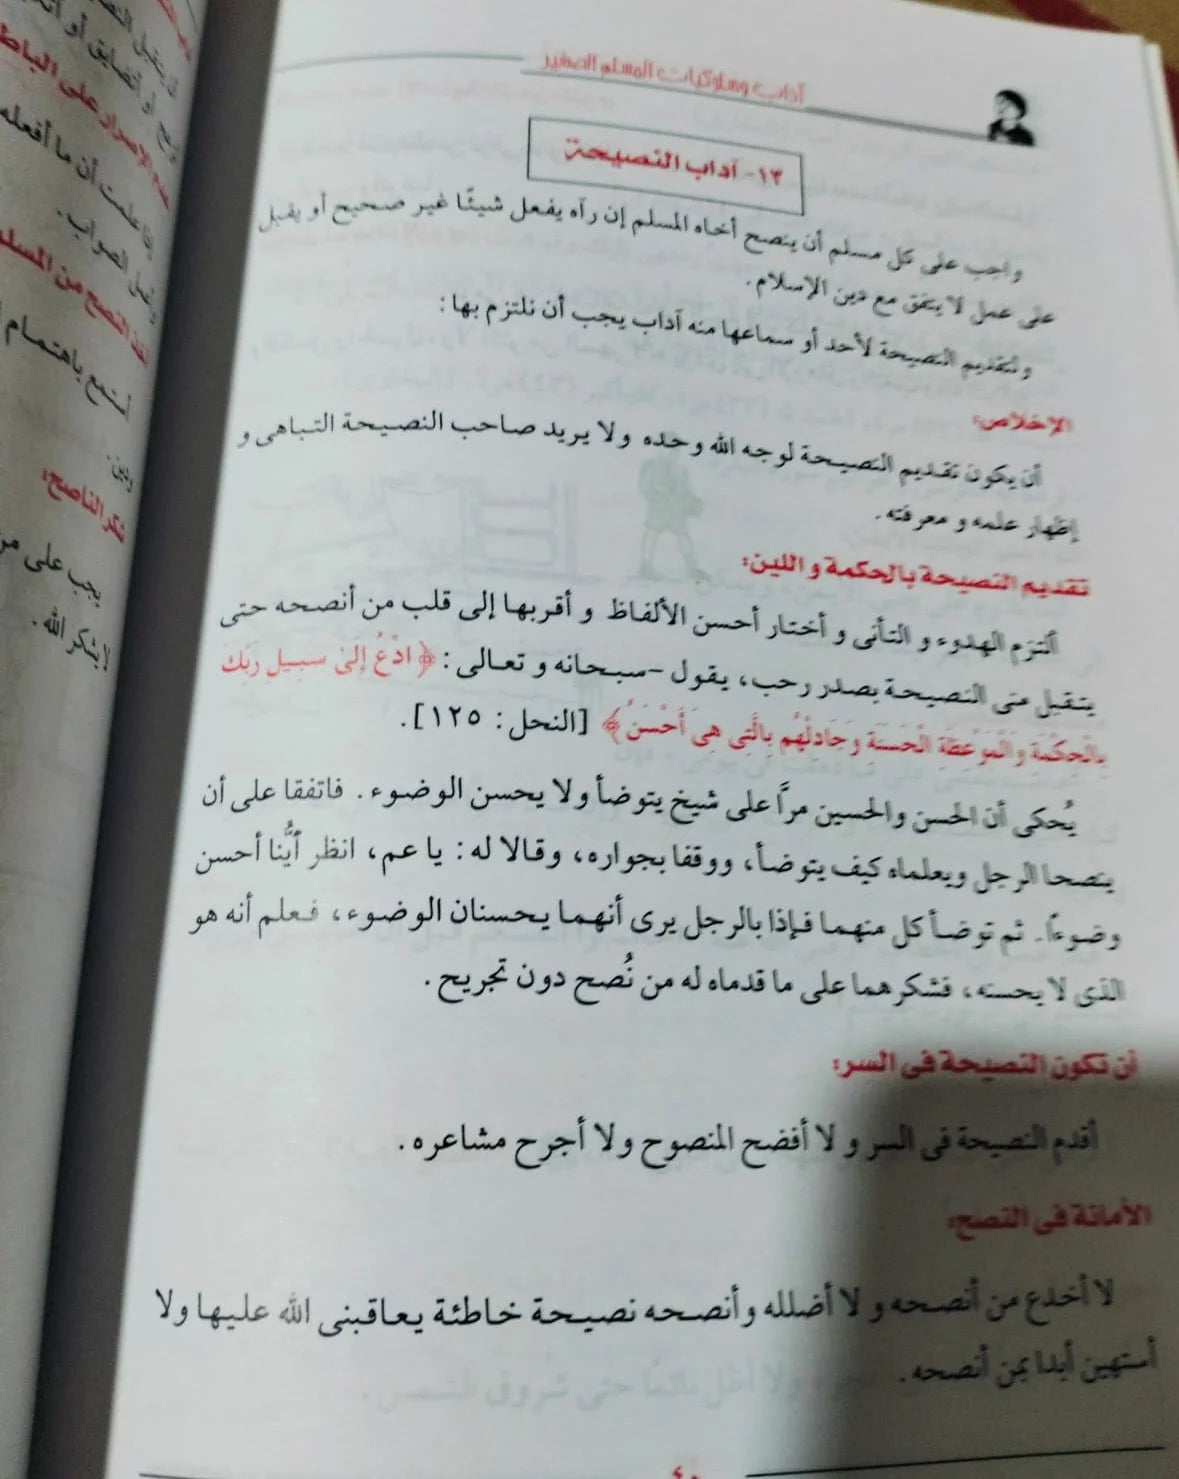 آداب وسلوكيات المسلم الصغير
١٣- آداب النصيحة
واجب على كل مسلم أن ينصح أخاه المسلم إن رآه يفعل شيئًا غير صحيح أو يقبل
على عمل لا يتفق مع دين الإسلام.
ولتقديم النصيحة لأحد أو سماعها منه آداب يجب أن نلتزم بها:
الإخلاص:
أن يكون تقديم النصيحة لوجه الله وحده ولا يريد صاحب النصيحة التباهى و
إظهار علمه و معرفته.
تقديم النصيحة بالحكمة و اللين:
ألتزم الهدوء و التأنى و أختار أحسن الألفاظ و أقربها إلى قلب من أنصحه حتى
يتقبل منى النصيحة بصدر رحب، يقول -سبحانه و تعالى: ﴿ ادْعُ إِلَىٰ سبيلِ ربِّكَ
بِالْحِكْمَةِ وَالْمَوْعِظَةِ الْحَسَنَةِ وَجَادِلْهُم بِالَّتِي هِيَ أَحْسَنُ﴾ [النحل: ١٢٥].
يُحكى أن الحسن والحسين مرَّا على شيخ يتوضأ ولا يحسن الوضوء. فاتفقا على أن
ينصحا الرجل ويعلماه كيف يتوضأ، ووقفا بجواره، وقالا له: يا عم، انظر أيُّنا أحسن
وضوءًا. ثم توضأ كل منهما فإذا بالرجل يرى أنهما يحسنان الوضوء، فعلم أنه هو
الذى لا يحسنه، فشكرهما على ما قدماه له من نُصح دون تجريح.
أن تكون النصيحة فى السر:
أقدم النصيحة فى السر و لا أفضح المنصوح ولا أجرح مشاعره.
الأمانة فى النصح:
لا أخدع من أنصحه و لا أضلله وأنصحه نصيحة خاطئة يعاقبنى الله عليها ولا
أستهين أبدا بمن أنصحه.
٤٠
الإصرار على الباط
إذا علمت أن ما أفعله
الصواب.
النصح من المسلم
أستمع باهتمام
ودين.
شكر الناصح:
يجب على من
لا يشكر الله.